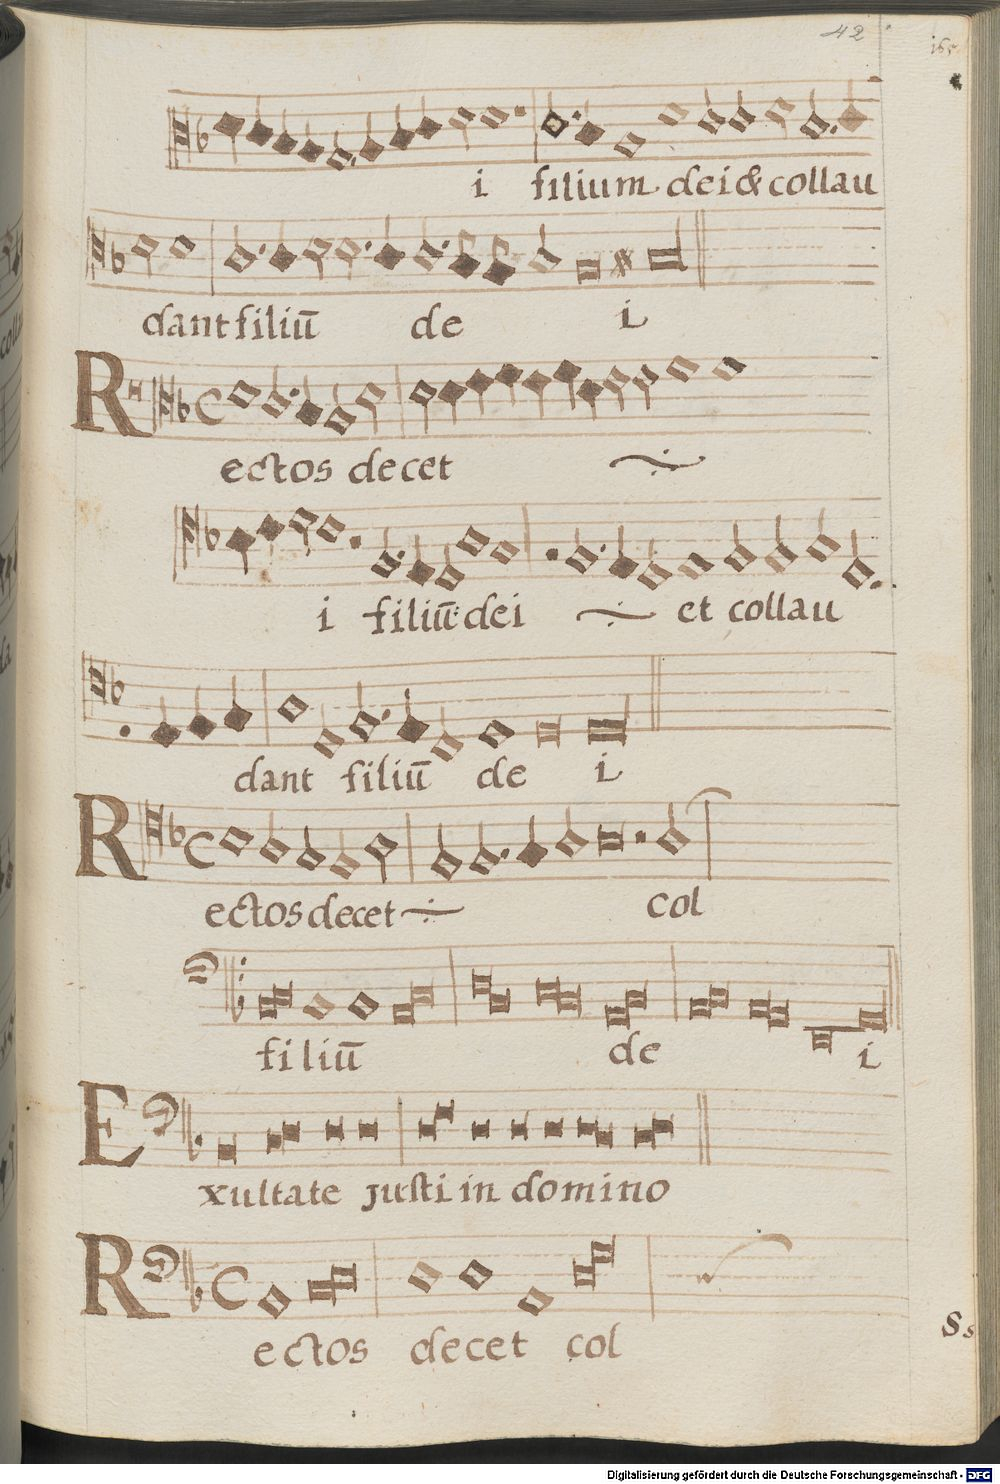 42
i filium dei & collau
dant filiū de i
Rectos decet
i filiū: dei et collau
dant filiū de i
Rectos decet col
filiū de i
Exultate justi in domino
Rectos decet col
Digitalisierung gefördert durch die Deutsche Forschungsgemeinschaft - DFG